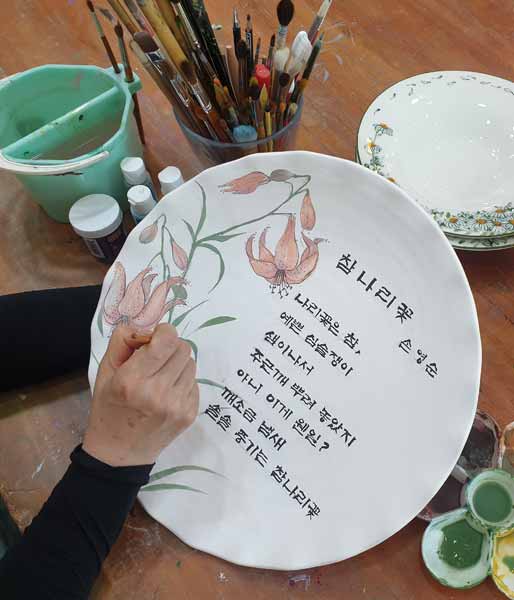 참나리꽃
손영순
나리꽃은 참,
예쁜 심술쟁이
샘이나서
주근깨 뿌려 놓았지
아니 이게 웬일?
깨소금 냄새
솔솔 풍기는 참나리꽃